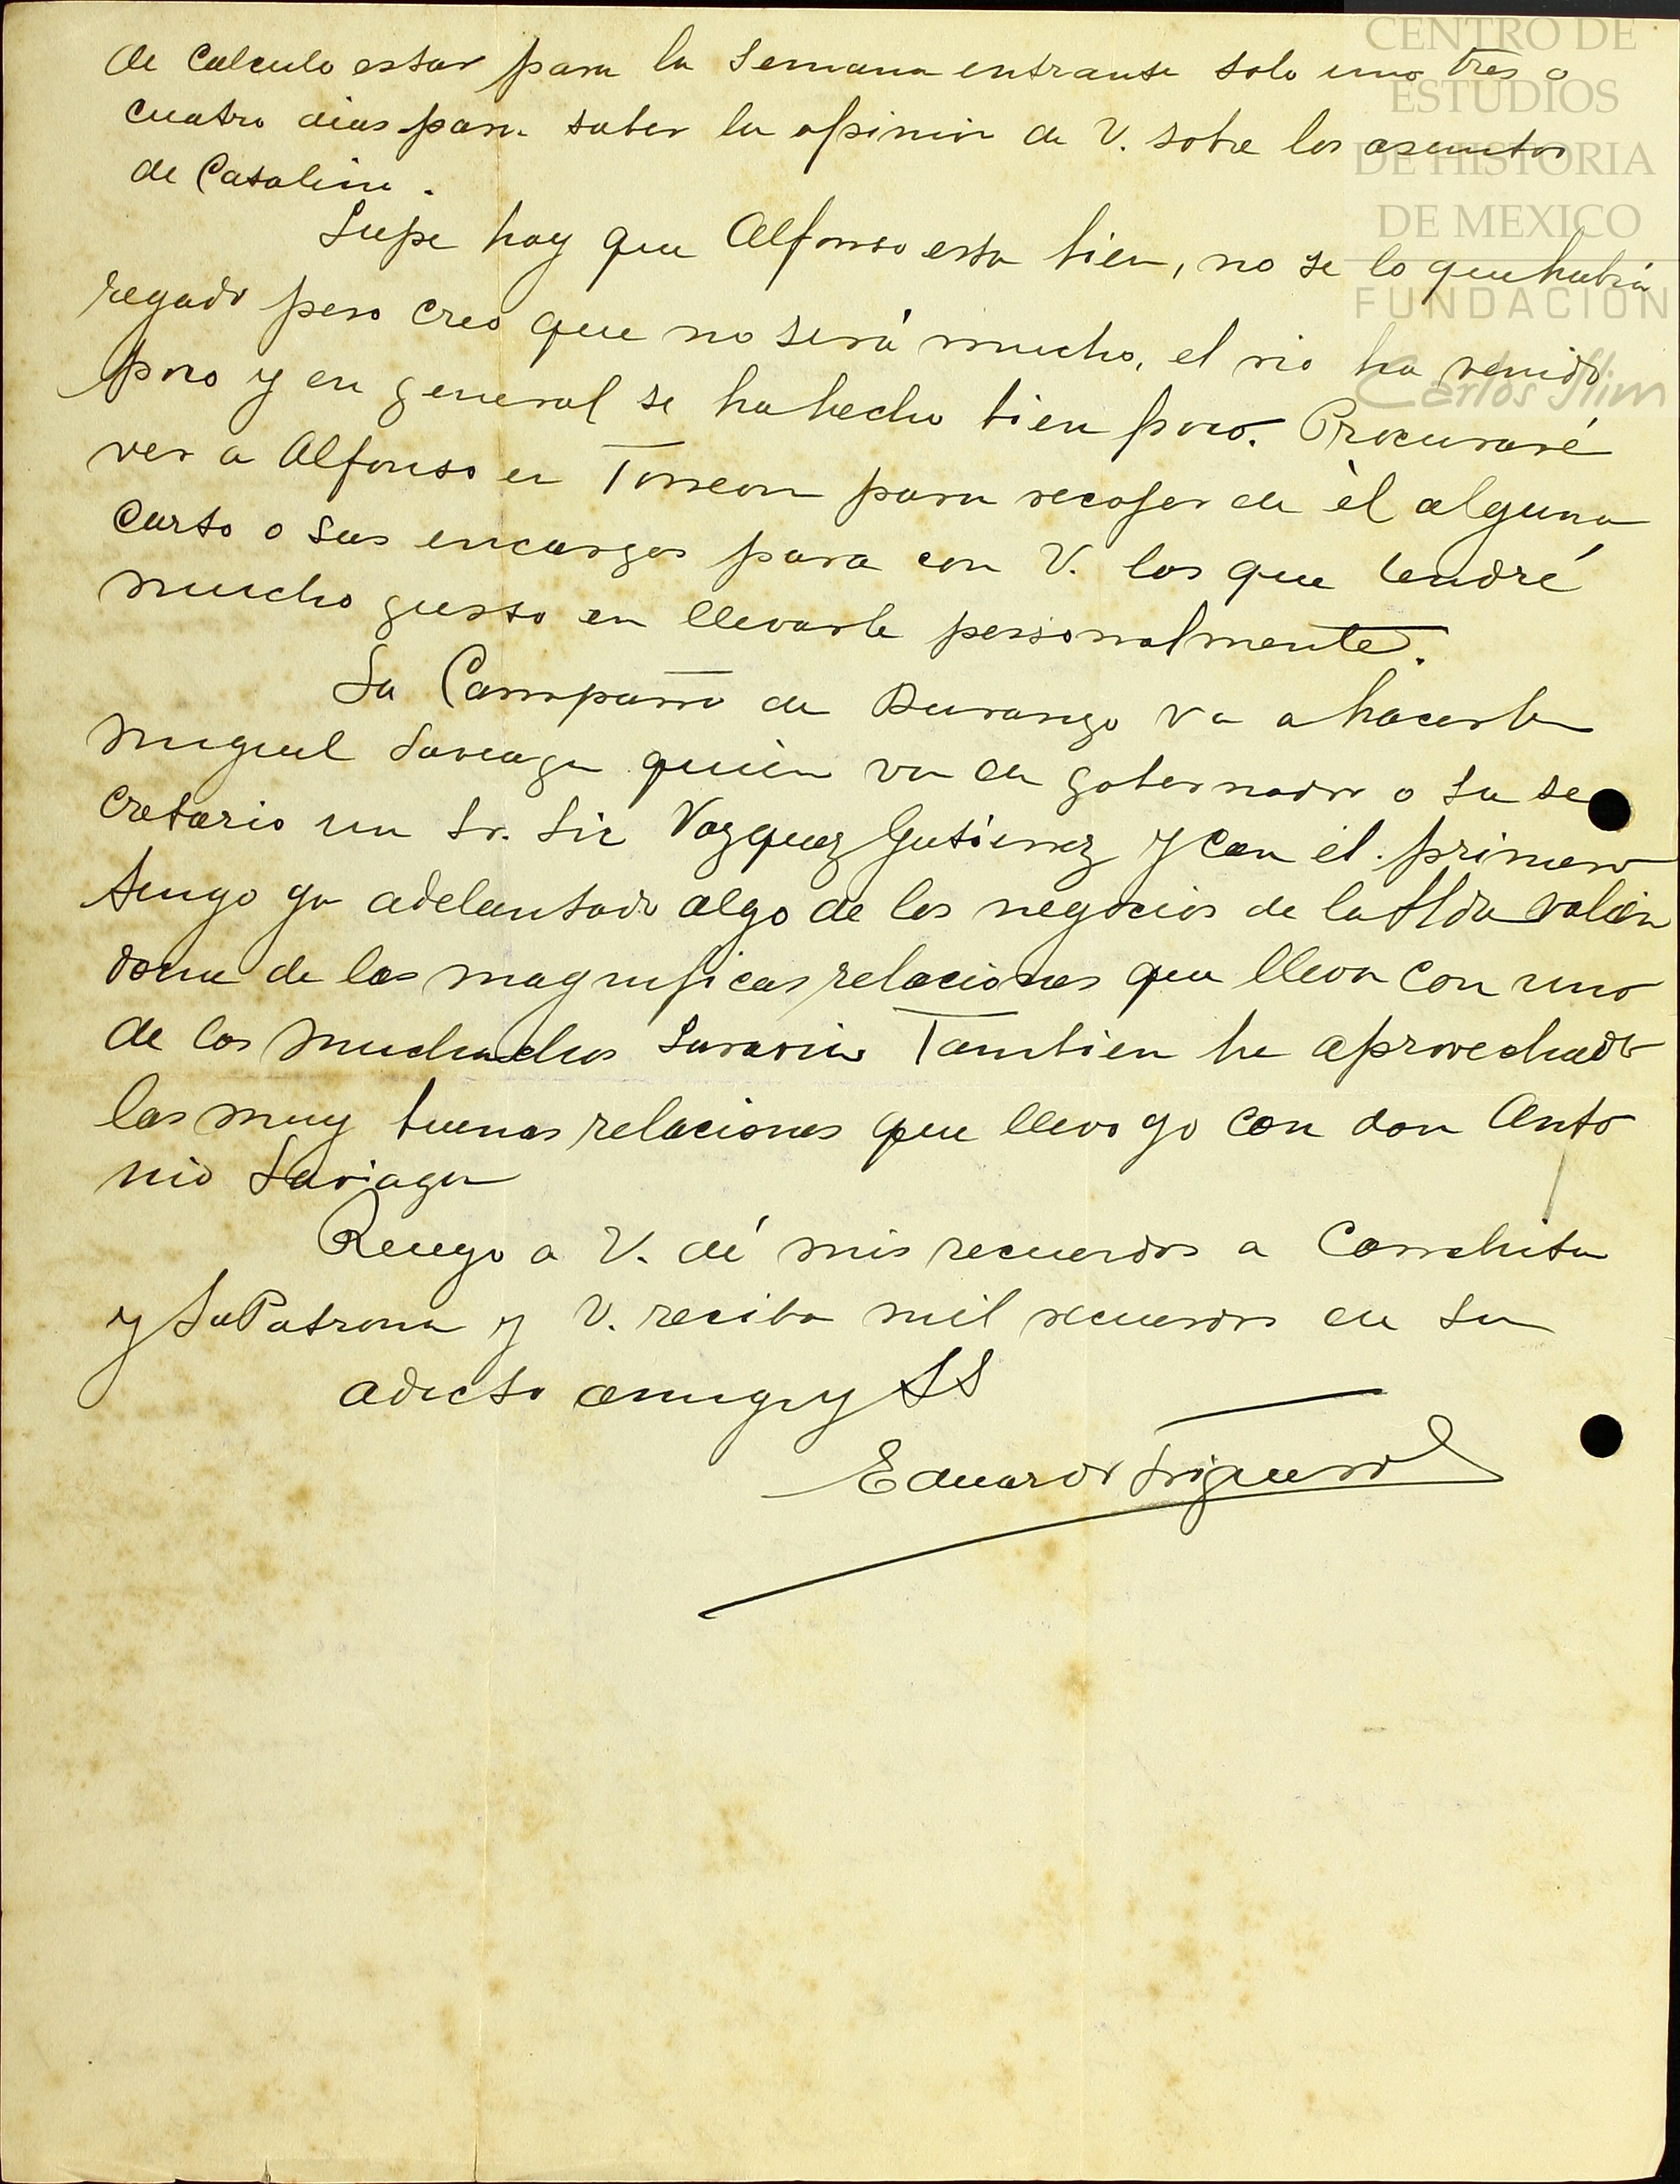 de calculo estar para la semana entrante solo uno tres o
cuatro dias para saber la opinion de V. sobre los asuntos
de Catalina.
Supe hoy que Alfonso esta bien, no se lo que habrá
regado pero creo que no será mucho, el rio ha venido
poco y en general se ha hecho bien poco. Procuraré
ver a Alfonso en Torreon para recojer de él alguna
carta o sus encargos para con V. los que tendré
mucho gusto en llevarle personalmente.
La Campaña de Durango va a hacerla
Miguel Laveaga quien va de gobernador o su se
cretario un Sr. Lic Vazquez Gutierrez y con él primero
tengo ya adelantado algo de los negocios de la Hda valien
dome de las magnificas relaciones que lleva con uno
de los muchachos Saravia Tambien he aprovechado
las muy buenas relaciones que llevo yo con don Anto
nio Laviaga
Ruego a V. dé mis recuerdos a Conchita
y La Patrona y V. reciba mil recuerdos de su
adicto amigo y SS
Eduardo Trigueros
CENTRO DE
ESTUDIOS
DE HISTORIA
DE MEXICO
FUNDACIÓN
Carlos Slim